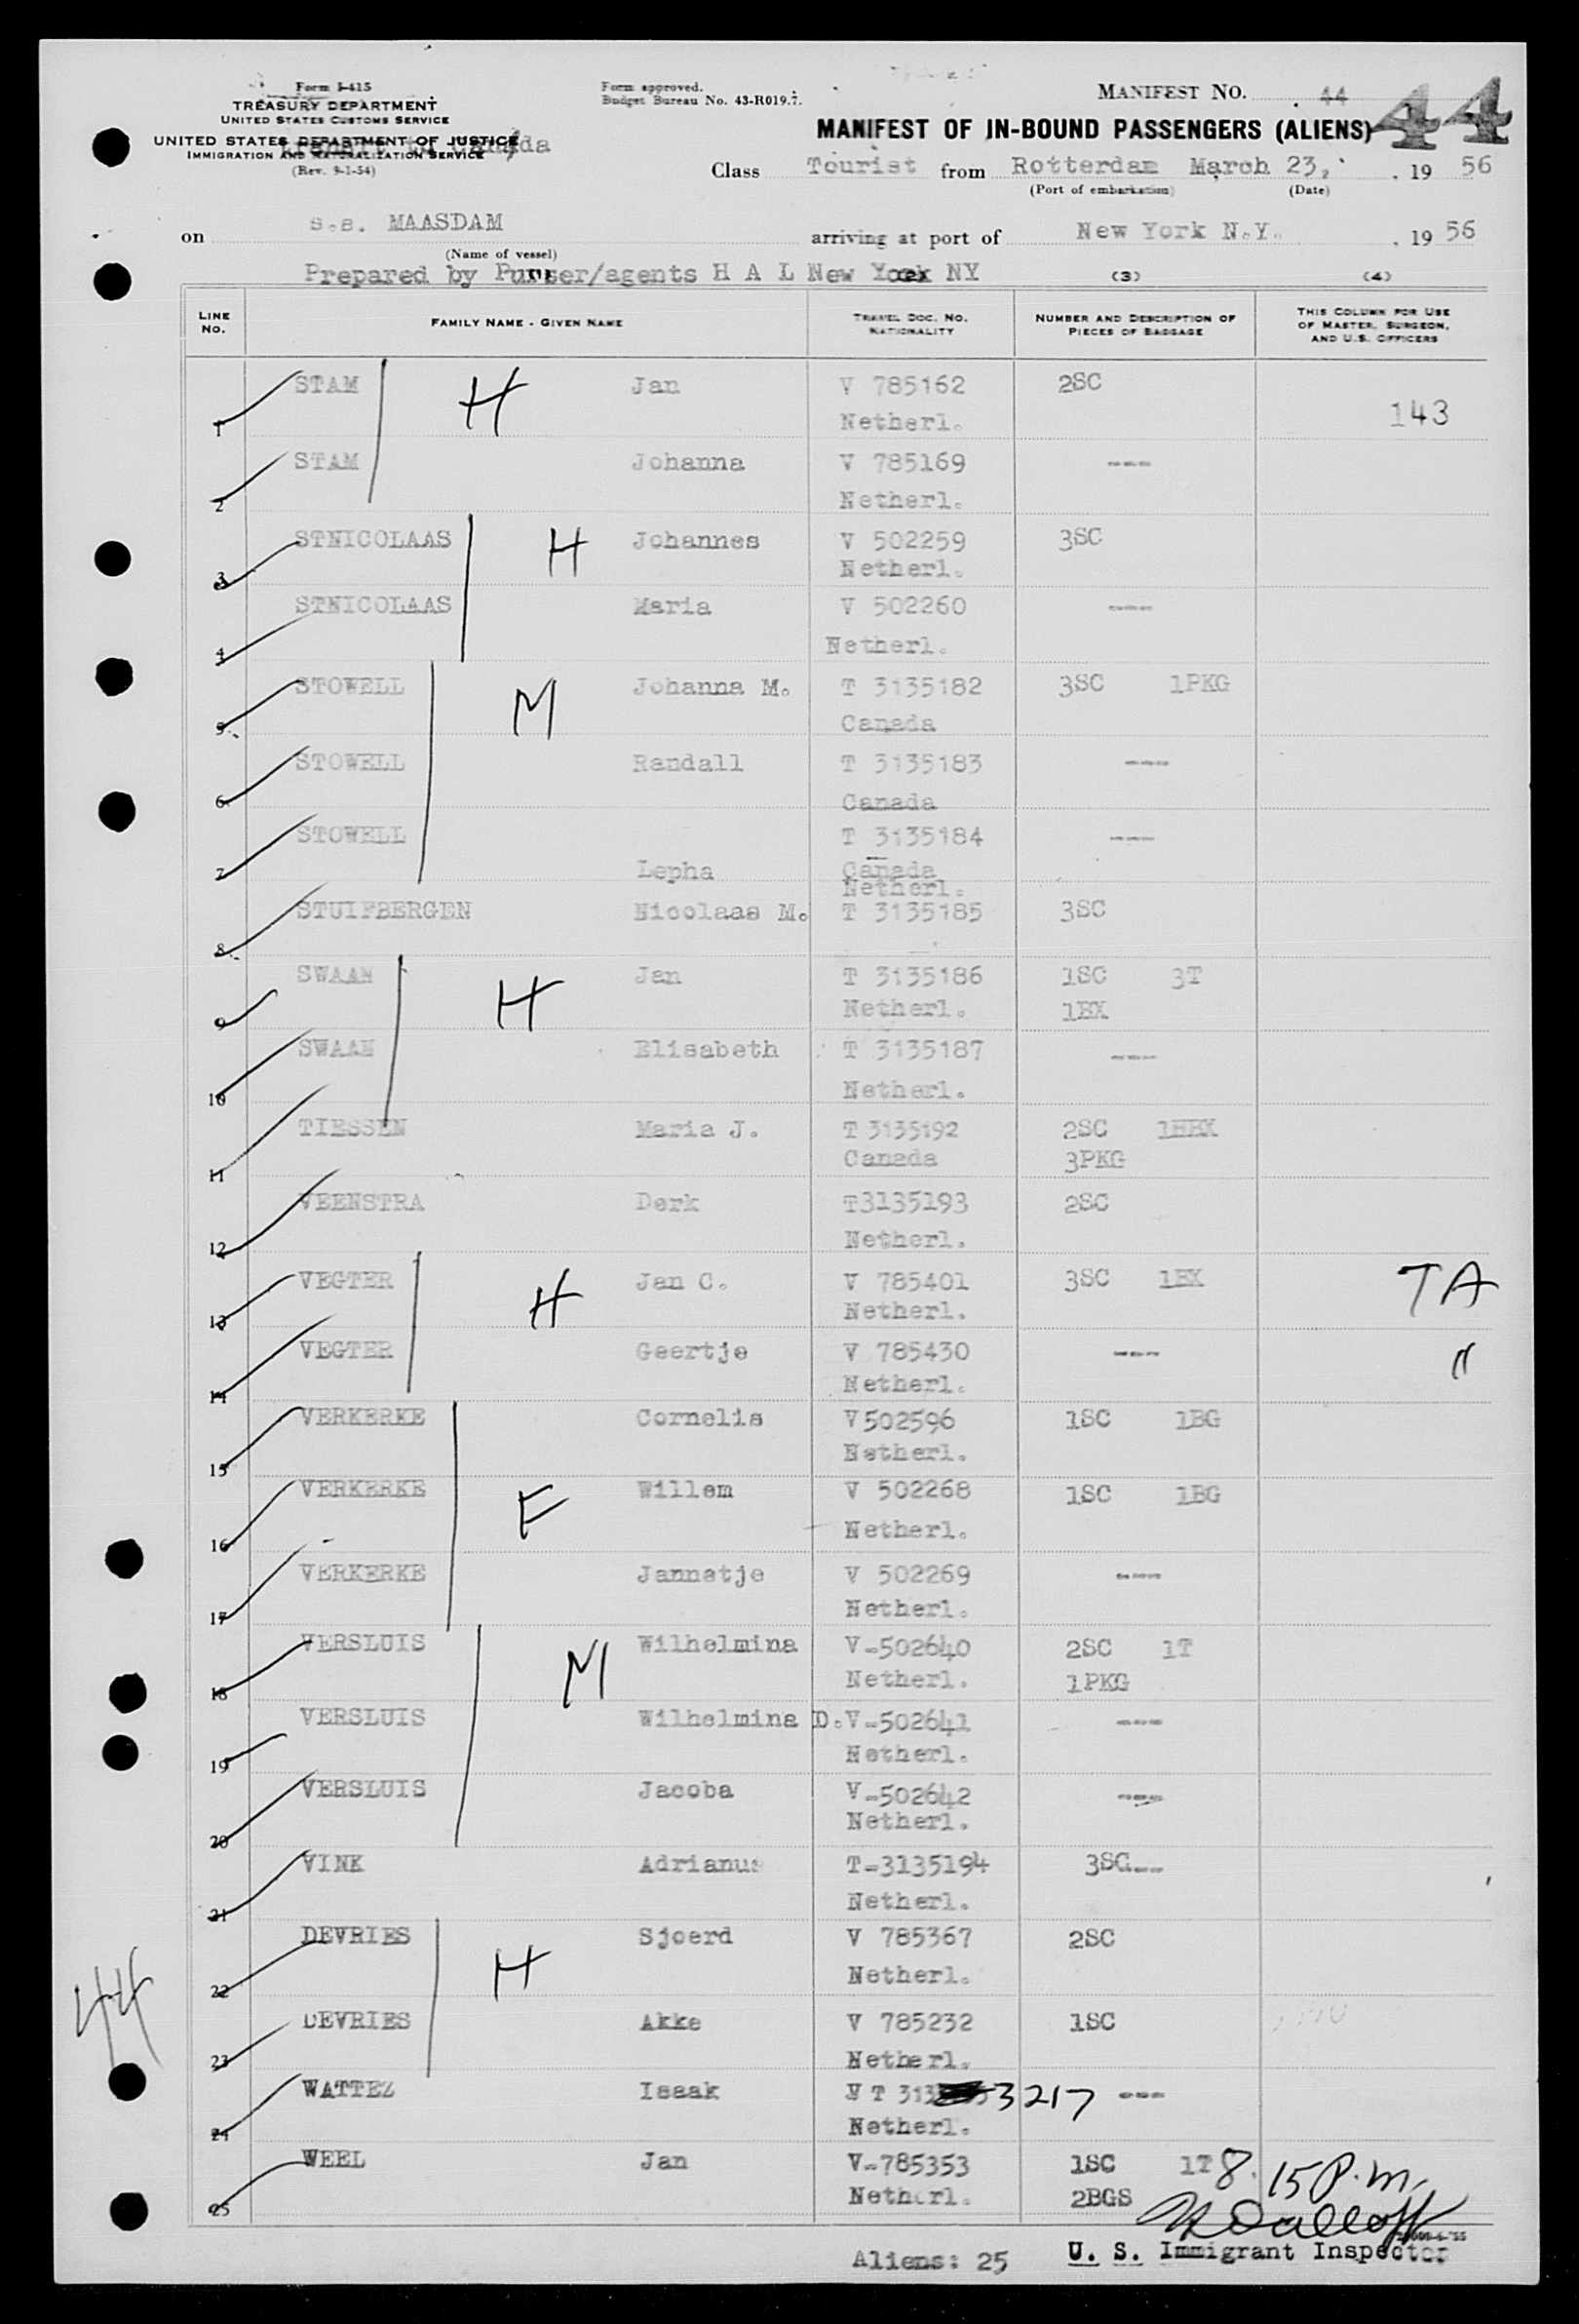 Form I-415
TREASURY DEPARTMENT
UNITED STATES CUSTOMS SERVICE
UNITED STATES DEPARTMENT OF JUSTICE
IMMIGRATION AND NATURALIZATION SERVICE
(Rev. 9-1-54)
Transit to Canada
Form approved.
Budget Bureau No. 43-R019.7.
MANIFEST NO. 44
44
MANIFEST OF IN-BOUND PASSENGERS (ALIENS)
Class Tourist from Rotterdam March 23, 1956
(Port of embarkation) (Date)
on s.s. MAASDAM arriving at port of New York N.Y. 1956
(Name of vessel)
Prepared by Purser/agents H A L New York NY (3) (4)
LINE NO. FAMILY NAME - GIVEN NAME TRAVEL DOC. NO. NATIONALITY NUMBER AND DESCRIPTION OF PIECES OF BAGGAGE THIS COLUMN FOR USE OF MASTER, SURGEON, AND U.S. OFFICERS
1 STAM H Jan V 785162 2SC
Netherl. 143
2 STAM Johanna V 785169 ---
Netherl.
3 STNICOLAAS H Johannes V 502259 3SC
Netherl.
4 STNICOLAAS Maria V 502260 ---
Netherl.
5 STOWELL M Johanna M. T 3135182 3SC 1PKG
Canada
6 STOWELL Randall T 3135183 ---
Canada
7 STOWELL T 3135184 ---
Lepha Canada
Netherl.
8 STUIFBERGEN Nicolaas M. T 3135185 3SC
9 SWAAN H Jan T 3135186 1SC 3T
Netherl. 1BX
10 SWAAN Elisabeth T 3135187 ---
Netherl.
11 TIESSEN Maria J. T 3135192 2SC 1HBX
Canada 3PKG
12 VEENSTRA Derk T3135193 2SC
Netherl.
13 VEGTER H Jan C. V 785401 3SC 1BX TA
Netherl.
14 VEGTER Geertje V 785430 --- "
Netherl.
15 VERKERKE Cornelis V502596 1SC 1BG
Netherl.
16 VERKERKE F Willem V 502268 1SC 1BG
Netherl.
17 VERKERKE Jannetje V 502269 ---
Netherl.
18 VERSLUIS M Wilhelmina V-502640 2SC 1T
Netherl. 1PKG
19 VERSLUIS Wilhelmina D. V-502641 ---
Netherl.
20 VERSLUIS Jacoba V-502642 ---
Netherl.
21 VINK Adrianus T-3135194 3SC---
Netherl.
22 DEVRIES H Sjoerd V 785367 2SC
Netherl.
44
23 DEVRIES Akke V 785232 1SC
Netherl.
24 WATTEZ Isaak V T 313 3217 ---
Netherl.
25 WEEL Jan V-785353 1SC 1T 8.15 P.m.
Netherl. 2BGS
Aliens: 25 U. S. Immigrant Inspector